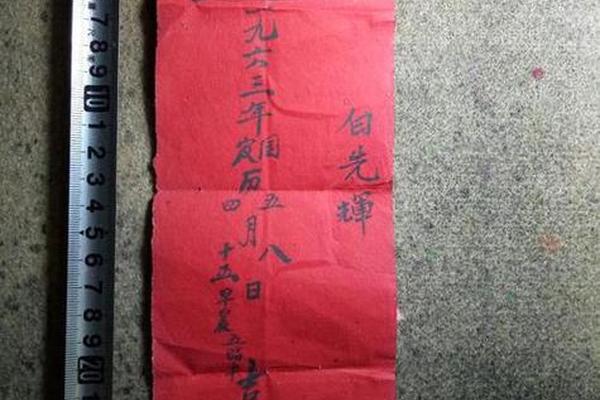 白先輝
九六三年国历五月八日
农四十五早晨五點半
7 8 9 10 1 2 3 4 5 6 7 8 9 20